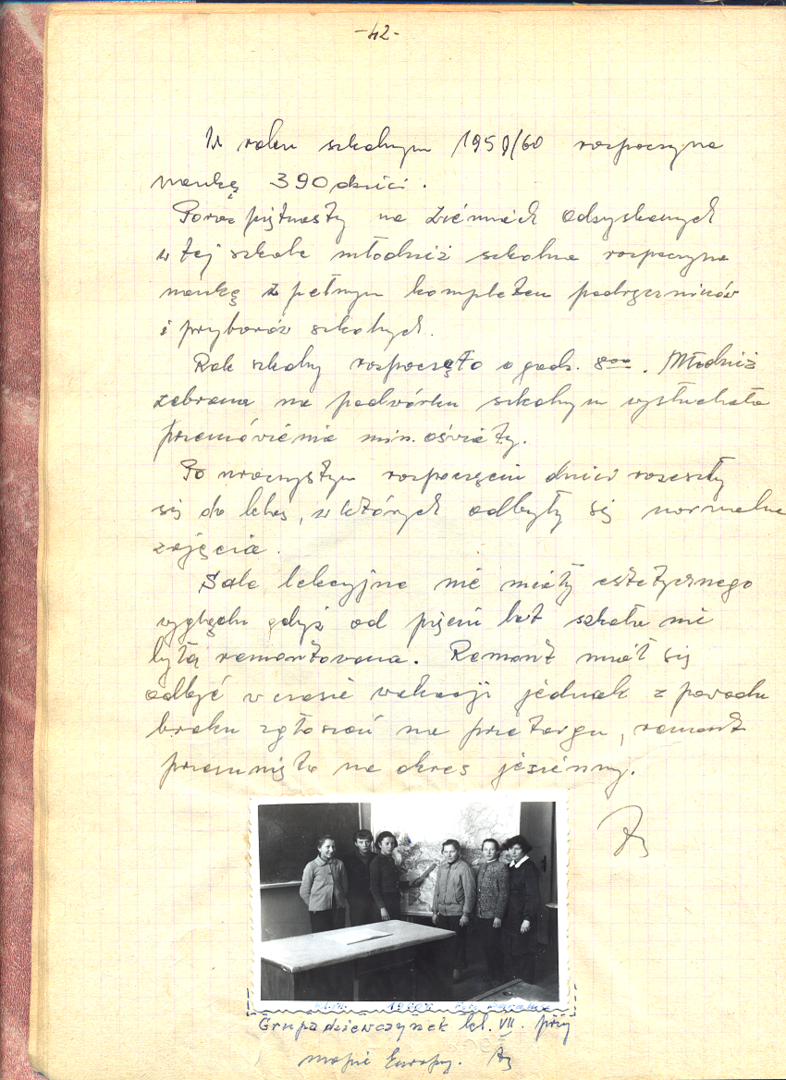 -42-
W roku szkolnym 1959/60 rozpoczyna
naukę 390 dzieci.
Poraz piętnasty na Ziemiach odzyskanych
w tej szkole młodzież szkolna rozpoczyna
naukę z pełnym kompletem podręczników
i przyborów szkolnych.
Rok szkolny rozpoczęto o godz. 8ººº. Młodzież
zebrana na podwórku szkolnym wysłuchała
przemówienia min. oświaty.
Po uroczystym rozpoczęciu dzieci rozeszły
się do klas, w których odbyły się normalne
zajęcia.
Sale lekcyjne nie miały estetycznego
wyglądu gdyż od pięciu lat szkoła nie
była remontowana. Remont miał się
odbyć w czasie wakacji jednak z powodu
braku zgłoszeń na przetargu, remont
przesunięto na okres jesienny.
Grupa dziewczynek kl. VII. przy
mapie Europy.